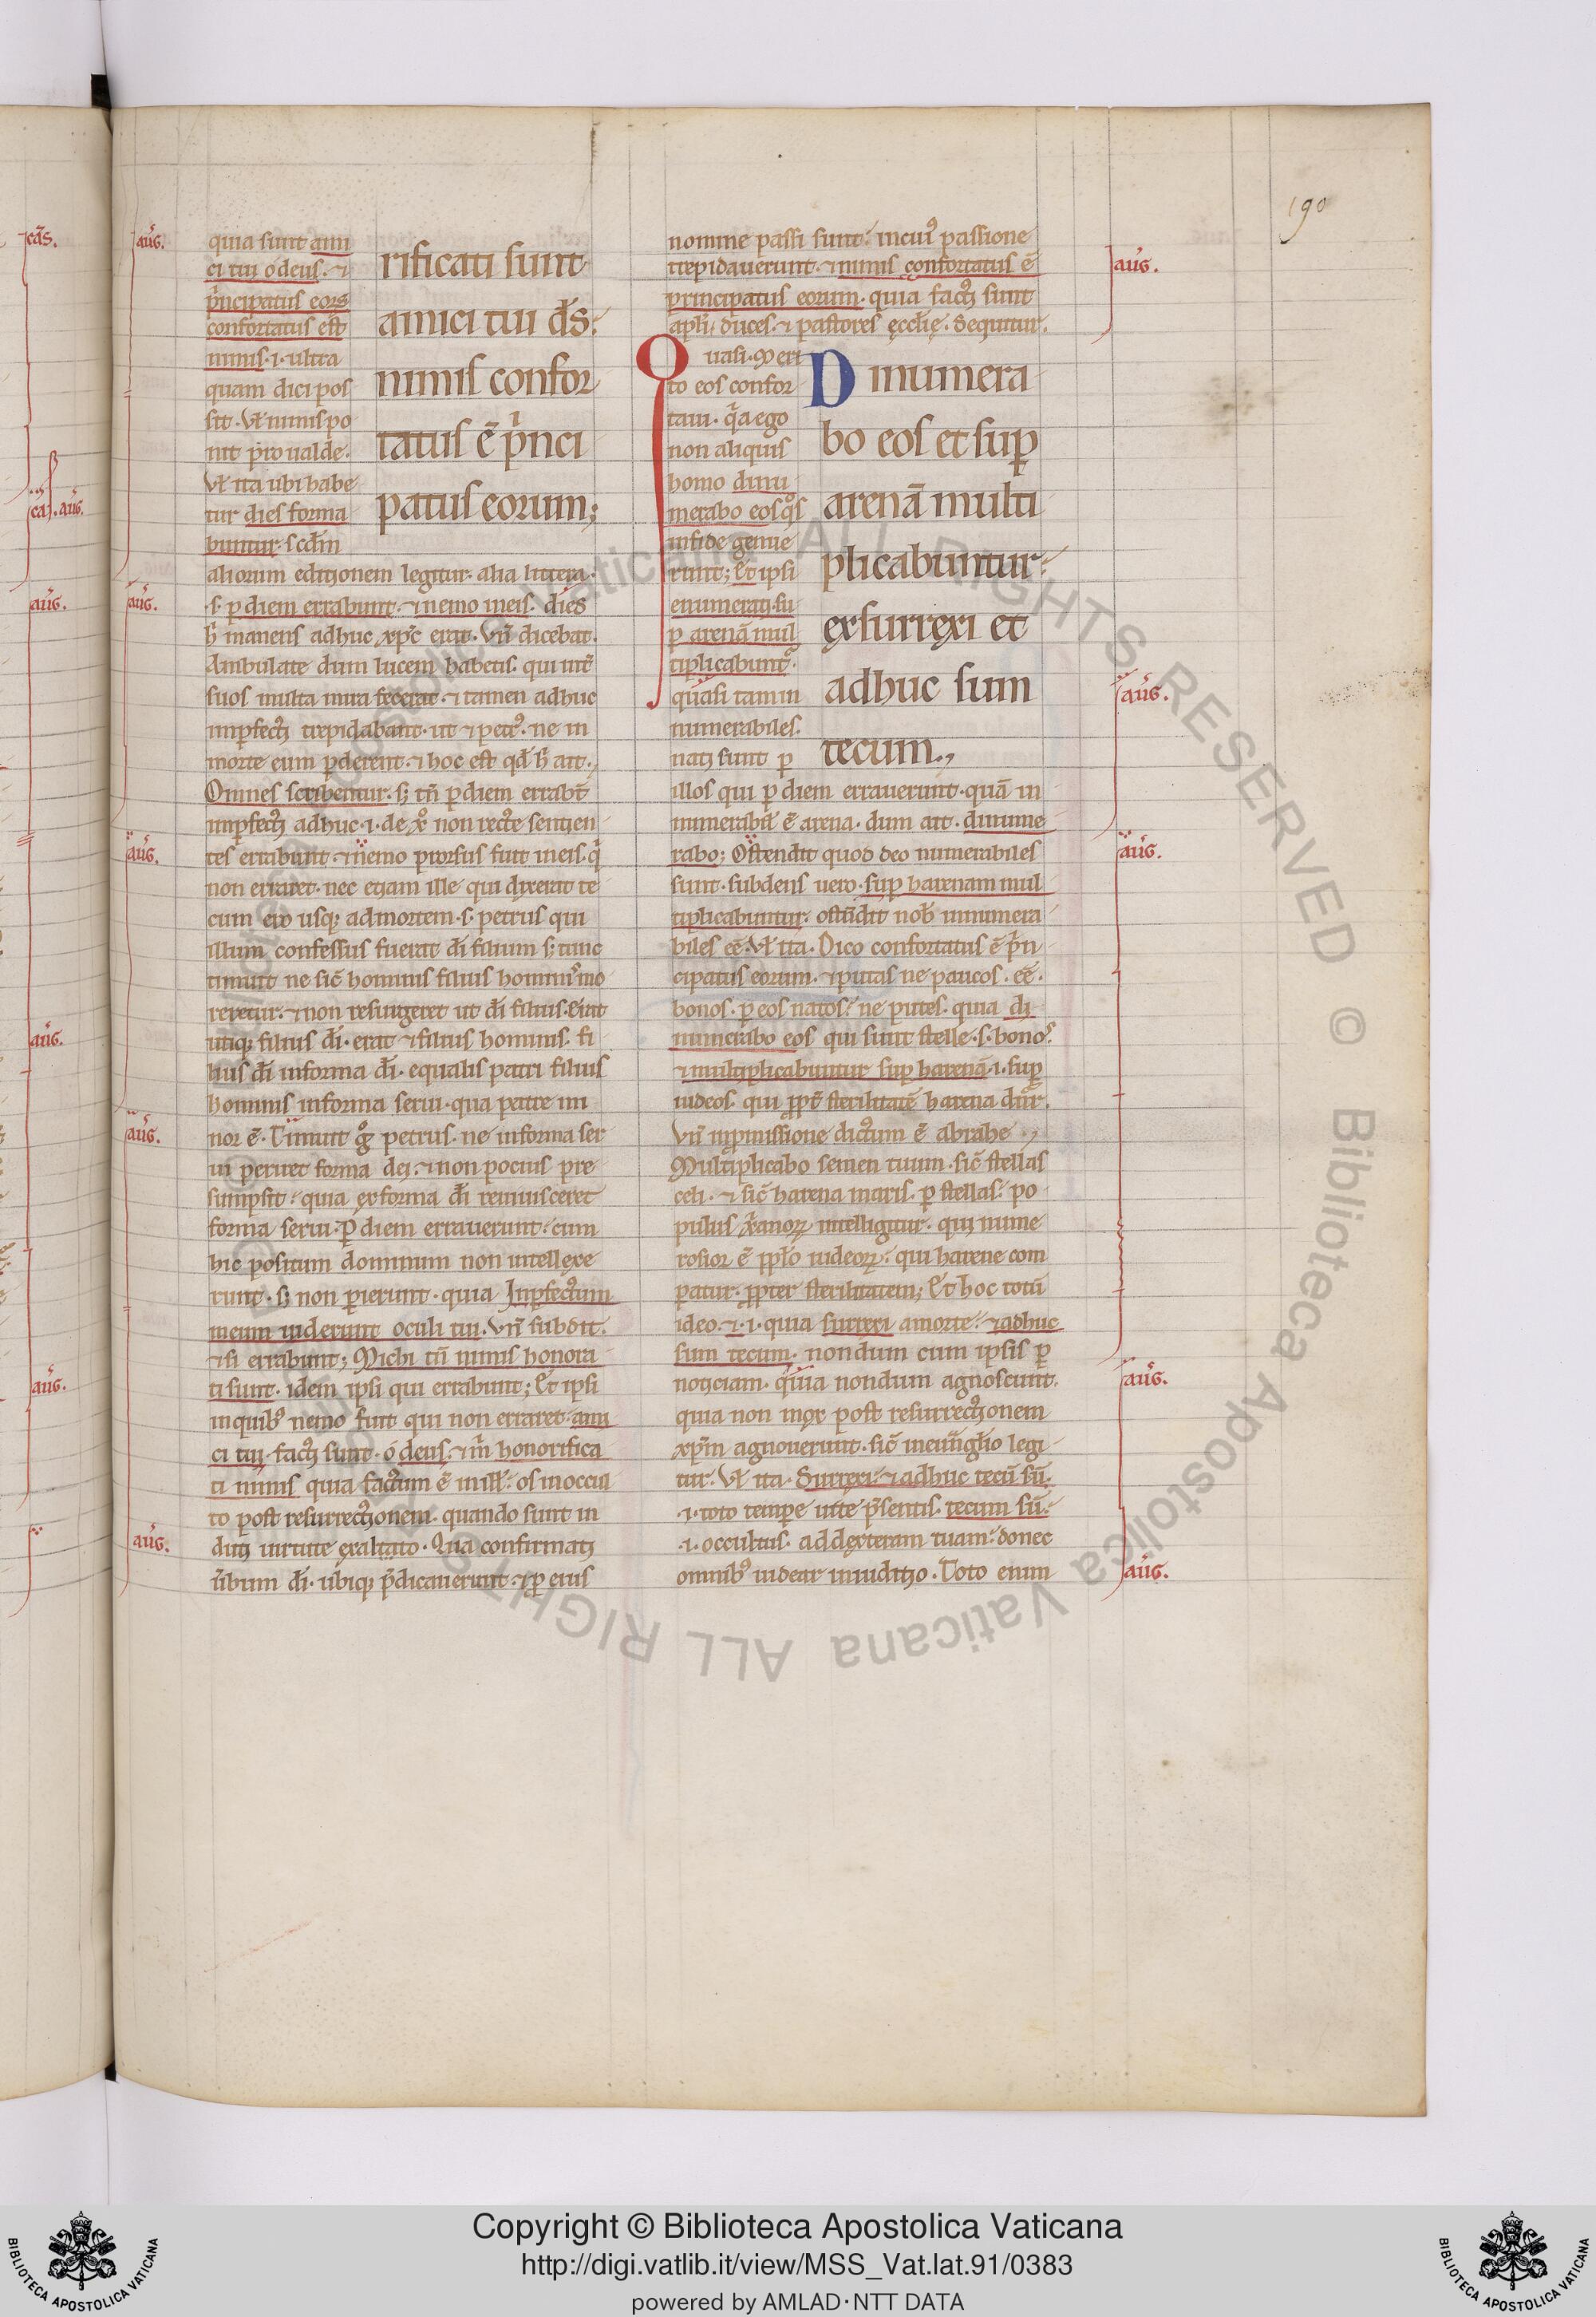 190
cas.
ca. aug.
aug.
aug.
aug.
aug.
quia sunt ami
ci tui o deus. ⁊
p̄ncipatus eoꝝ
confortatus est
nimis .i. ultra
quam dici pos
sit. Vl̄ nimis po
nit pro ualde.
Vl̄ ita ubi habe
tur dies forma
buntur. scd̄m
rificati sunt
amici tui d̄s:
nimis confor
tatus ē p̄nci
patus eorum;
aliorum editionem legitur. alia littera.
.s. ꝑ diem errabunt. ⁊ nemo in eis. dies
h̄ manens adhuc xp̄c erat. Vn̄ dicebat.
Ambulate dum lucem habetis. qui int̄
suos multa mira fecerat. ⁊ tamen adhuc
imꝑfecti trepidabant. ut ⁊ petꝰ. ne in
morte eum ꝑderent. ⁊ hoc est qd̄ h̄ ait.
Omnes scribentur. sꝫ tn̄ ꝑ diem errabt̄
imꝑfecti adhuc .i. de xͦ non recte sentien
tes errabunt. ⁊ nemo prorsus fuit in eis. q̄
non erraret. nec etiam ille qui dixerat te
cum ero usqꝫ ad mortem .s. petrus qui
illum confessus fuerat d̄i filium sꝫ tunc
timuit ne sic̄ hominis filius hominis mo
reretur. ⁊ non resurgeret ut d̄i filius. Erat
utiqꝫ filius d̄i. erat ⁊ filius hominis. fi
lius d̄i in forma d̄i. equalis patri filius
hominis in forma serui. qua patre mi
nor ē. Timuit gͦ petrus. ne in forma ser
ui periret forma dei. ⁊ non pocius pre
sumpsit. quia ex forma d̄i reuiuisceret
forma serui. Ꝑ diem errauerunt. cum
hic positum dominum non intellexe
runt. sꝫ non ꝑierunt. quia Inꝑfectum
meum uiderunt oculi tui. Vn̄ subdit.
⁊ si errabunt; Michi tn̄ nimis honora
ti sunt. idem ipsi qui errabunt; Et ipsi
in quibꝰ nemo fuit qui non erraret. ami
ci tui. facti sunt. o deus. ⁊ m̄ honorifica
ti nimis quia factum ē in ill̄. os in occul
to post resurrectionem. quando sunt in
duti uirtute ex alto. Qua confirmati
ūbum d̄i. ubiqꝫ p̄dicauerunt. ⁊ ꝓ eius
aug.
aug.
aug.
aug.
aug.
nomine passi sunt. in cuiꝰ passione
trepidauerunt. ⁊ nimis confortatus ē
principatus eorum. quia facti sunt
apl̄i. duces. ⁊ pastores ęccl̄ię. Sequitur.
Quasi. Meri
to eos confor
taui. q̄a ego
non aliquis
homo dinu
merabo eos qͦs
in fide genue
runt; Et ipsi
enumerati. su
ꝑ arenā mul
tiplicabuntᷣ.
quasi tam in
numerabiles
nati sunt ꝑ
Dinumera
bo eos et suꝑ
arenā multi
plicabuntur:
exsurrexi et
adhuc sum
tecum.,
illos qui ꝑ diem errauerunt. quā in
numerabil̄ ē arena. dum ait. dinume
rabo; Ostendit quod deo numerabiles
sunt. subdens uero. suꝑ harenam mul
tiplicabuntur. ostendit nob̄ innumera
biles eē. Vl̄ ita. Dico confortatus ē p̄n
cipatus eorum. ⁊ putas ne paucos. eē.
bonos. ꝑ eos natos. ne putes. quia di
numerabo eos qui sunt stelle .s. bonos
⁊ multiplicabuntur suꝑ harenā .i. suꝑ
iudeos. qui ꝓpt̄ sterilitatē harena dn̄r.
Vn̄ in ꝓmissione dictum ē abrahe.,
Multiplicabo semen tuum. sic̄ stellas
celi. ⁊ sic̄ harena maris. ꝑ stellas. po
pulus xp̄ianoꝝ intelligitur. qui nume
rosior ē ppl̄o iudeoꝝ. qui harene com
ꝑatur. ꝓpter sterilitatem; Et hoc totū
ideo. ⁊ .i. quia surrexi a morte. ⁊ adhuc
sum tecum. nondum cum ipsis ꝑ
noticiam. quia nondum agnoscunt.
quia non mox post resurrectionem
xp̄m agnouerunt. sic̄ in euuangl̄io legi
tur. Vl̄ ita. Surrexi. ⁊ adhuc tecū sū.
.i. toto tempe uite p̄sentis. tecum sū.
.i. occultus. ad dexteram tuam. donec
omnibꝰ uidear in iuditio. Toto enim
aug.
aug.
aug.
aug.
aug.
© Biblioteca Apostolica Vaticana ALL RIGHTS RESERVED
Copyright © Biblioteca Apostolica Vaticana
http://digi.vatlib.it/view/MSS_Vat.lat.91/0383
powered by AMLAD·NTT DATA
BIBLIOTECA APOSTOLICA VATICANA
BIBLIOTECA APOSTOLICA VATICANA